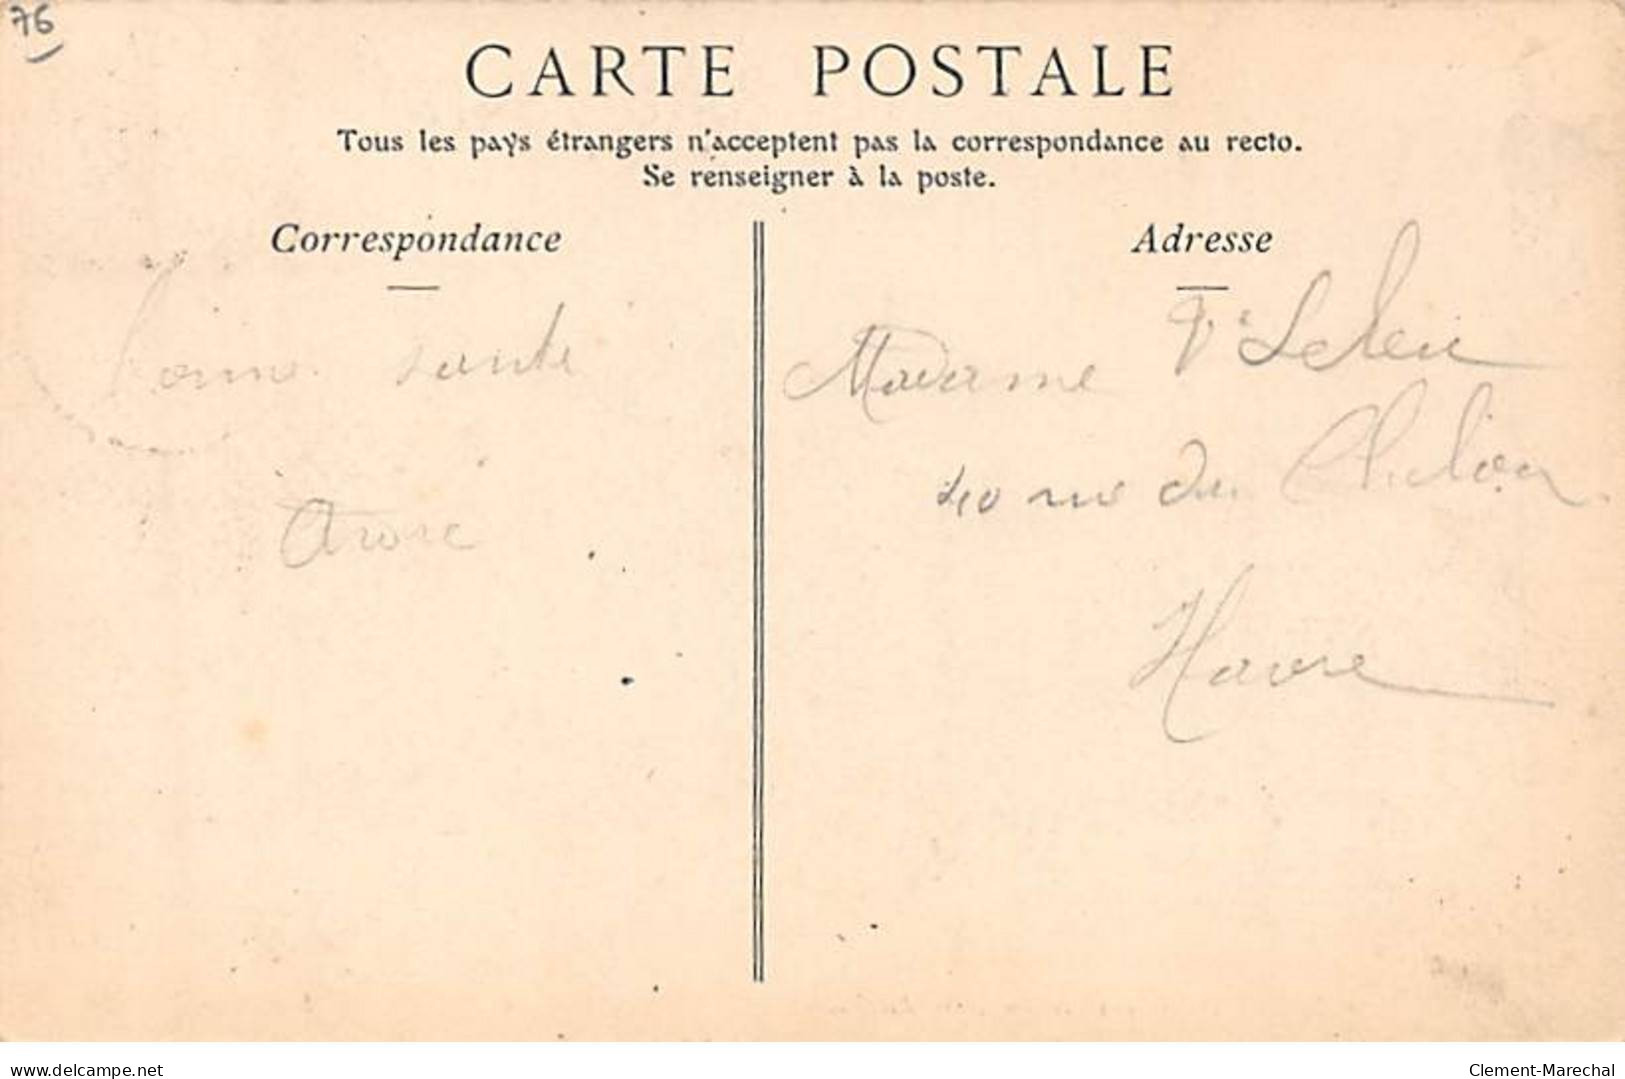 76
CARTE POSTALE
Tous les pays étrangers n'acceptent pas la correspondance au recto.
Se renseigner à la poste.
Correspondance
Bonne santé
Adresse
Madame Vᵉ
40 rue du
Havre
delcampe.net
Clement-Marechal